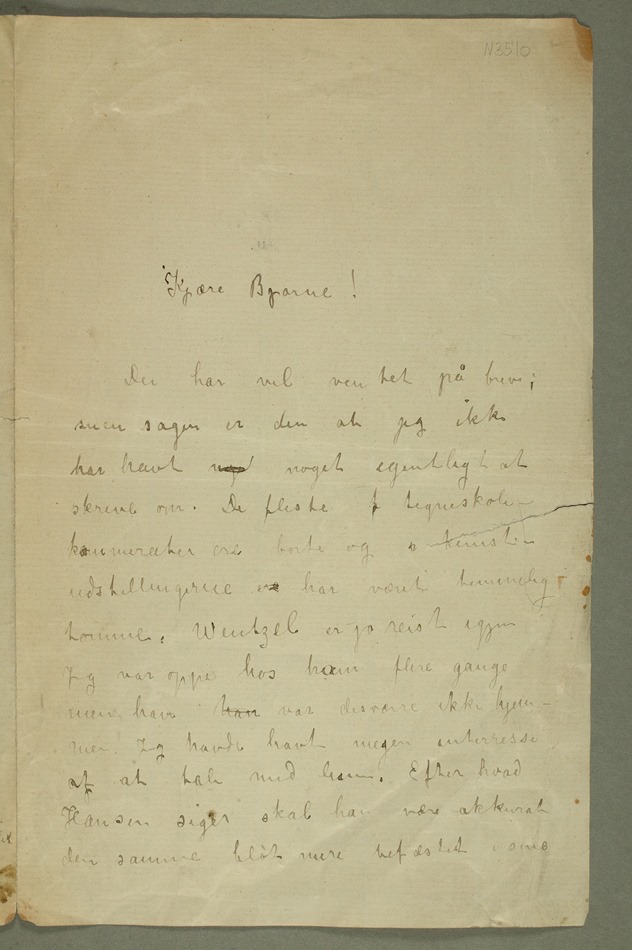 N3510
Kjære Bjarne!
Du har vel ventet på brev;
men sagen er den at jeg ikke
har havt noget egentligt at
skrive om. De fleste tegneskole-
kammerater ere borte og kunst
udstillingerne har været temmelig
tomme. Wentzel er jo reist igjen
Jeg var oppe hos ham flere gange
men han var desværre ikke hjem-
me. Jeg havde havt megen interresse
af at tale med ham. Efter hvad
Hansen siger skal han være akkurat
den samme blot mere befæstet i sine